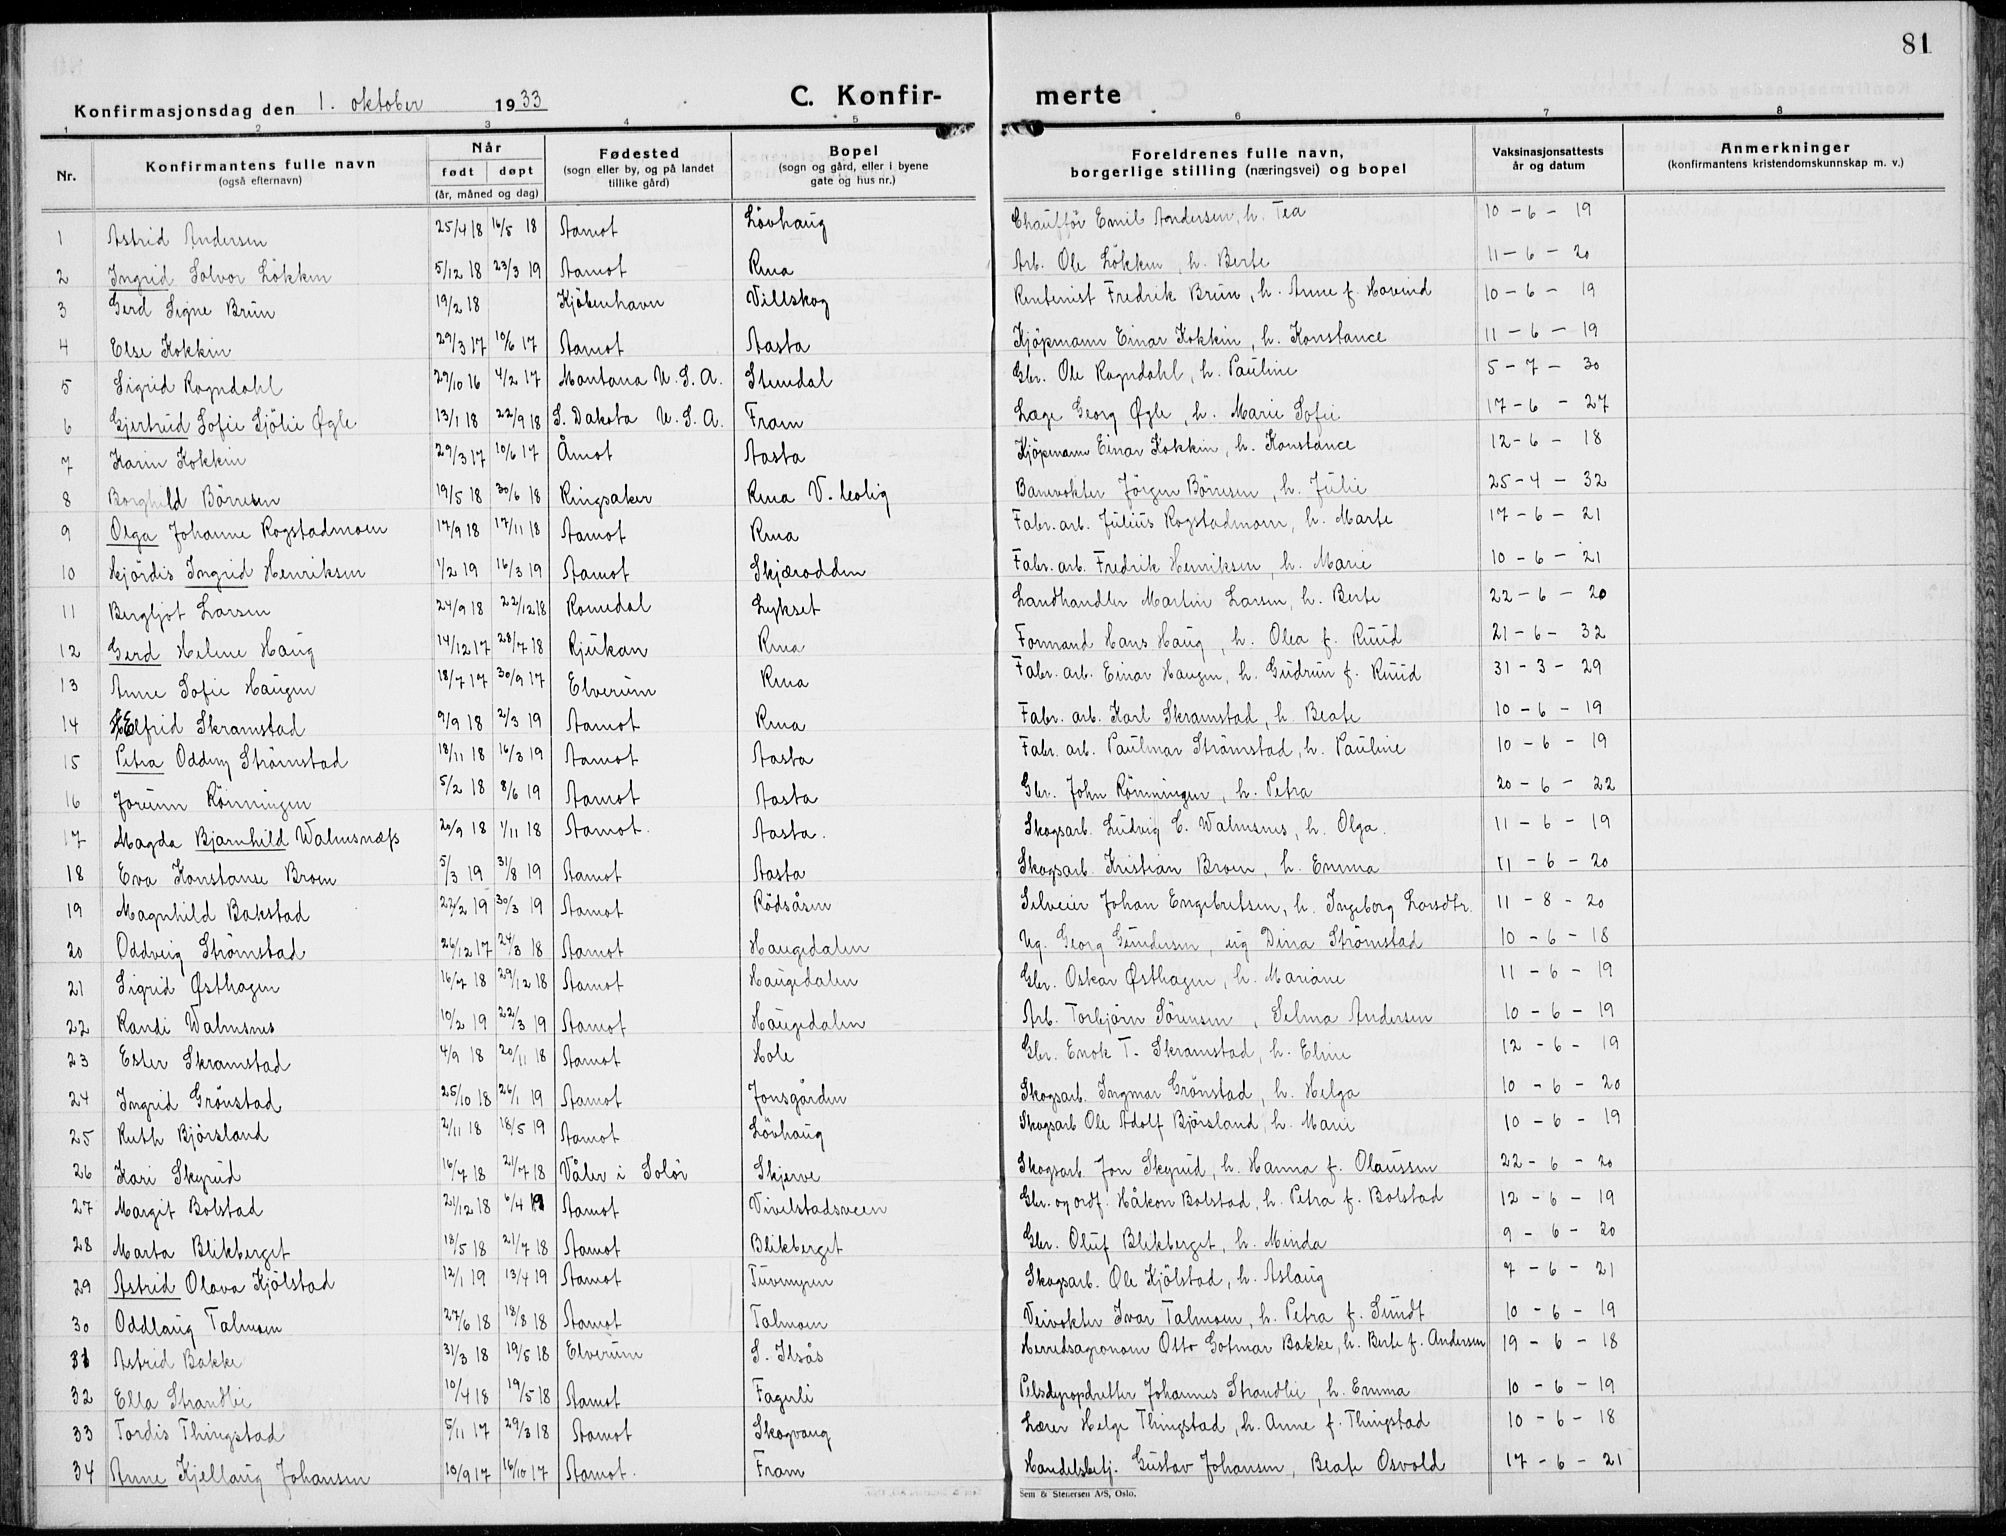 81
Konfirmasjonsdag den 1. oktober 1933 C. Konfirmerte
1 2 3 4 5 6 7 8
Nr. Konfirmantens fulle navn (også efternavn) Når født døpt (år, måned og dag) Fødested (sogn eller by, og på landet tillike gård) Bopel (sogn og gård, eller i byene gate og hus nr.) Foreldrenes fulle navn, borgerlige stilling (næringsvei) og bopel Vaksinasjonsattests år og datum Anmerkninger (konfirmantens kristendomskunnskap m. v.)
1 Astrid Andersen 25/4 18 16/5 18 Aamot Lövhaug Chaufför Emil Andersen, h. Tea 10 - 6 - 19
2 Ingrid Solvor Lökken 5/12 18 23/3 19 Aamot Rena Arb. Ole Lökken, h. Berte 11 - 6 - 20
3 Gerd Signe Brun 19/2 18 Kjöbenhavn Villskog Rentenist Fredrik Brun, h. Anne f. Hovind 10 - 6 - 19
4 Else Kokkin 29/3 17 10/6 17 Aamot Aasta Kjöpmann Einar Kokkin, h. Konstance 11 - 6 - 19
5 Sigrid Rogndahl 29/10 16 4/2 17 Montana U. S. A. Stendal Gbr. Ole Rogndahl, h. Pauline 5 - 7 - 30
6 Gjertrud Sofie Sjölie Øgle 13/1 18 22/9 18 S. Dakota U. S. A. Fram Læge Georg Øgle, h. Marie Sofie 17 - 6 - 27
7 Karin Kokkin 29/3 17 10/6 17 Åmot Aasta Kjöpmann Einar Kokkin, h. Konstance 12 - 6 - 18
8 Borghild Börresen 19/5 18 30/6 18 Ringsaker Rena V. bolig Banevokter Jörgen Börresen, h. Julie 25 - 4 - 32
9 Olga Johanne Rogstadmoen 17/9 18 17/11 18 Aamot Rena Fabr. arb. Julius Rogstadmoen, h. Marte 17 - 6 - 21
10 Hjördis Ingrid Henriksen 1/2 19 16/3 19 Aamot Skjærodden Fabr. arb. Fredrik Henriksen, h. Marie 10 - 6 - 21
11 Bergljot Larsen 24/9 18 22/12 18 Romedal Lykset Landhandler Martin Larsen, h. Berte 22 - 6 - 20
12 Gerd Helene Haug 14/12 17 28/7 18 Rjukan Rena Formand Hans Haug, h. Olea f. Ruud 21 - 6 - 32
13 Anne Sofie Haugen 18/7 17 30/9 17 Elverum Rena Fabr. arb. Einar Haugen, h. Gudrun f. Ruud 31 - 3 - 29
14 Elfrid Skramstad 9/9 18 2/3 19 Aamot Rena Fabr. arb. Karl Skramstad, h. Beate 10 - 6 - 19
15 Petra Oddny Strömstad 18/11 18 16/3 19 Aamot Aasta Fabr. arb. Paulmar Strömstad, h. Pauline 10 - 6 - 19
16 Jorunn Rönningen 5/2 18 8/6 19 Aamot Aasta Gbr. John Rönningen, h. Petra 20 - 6 - 22
17 Magda Bjarnhild Walmsnæss 20/9 18 1/11 18 Aamot. Aasta. Skogsarb. Ludvig C. Walmsnes, h. Olga. 11 - 6 - 19
18 Eva Konstanse Broen 5/3 19 31/8 19 Aamot Aasta Skogsarb. Kristian Broen, h. Emma 11 - 6 - 20
19 Magnhild Bakstad 22/2 19 30/3 19 Aamot Rödsåsen Selveier Johan Engebretsen, h. Ingeborg Larsdtr. 11 - 8 - 20
20 Oddveig Strömstad 26/12 17 24/3 18 Aamot Haugedalen Ug. Georg Gundersen, ug Dina Strömstad 10 - 6 - 18
21 Sigrid Østhagen 16/7 18 29/12 18 Aamot Haugedalen Gbr. Oskar Østhagen, h. Mariane 11 - 6 - 19
22 Randi Walmsnes 10/2 19 22/3 19 Aamot Haugedalen Arb. Torbjörn Sörensen, Selma Andersen 10 - 6 - 19
23 Ester Skramstad 4/9 18 20/11 18 Aamot Hole Gbr. Enok T. Skramstad, h. Eline 12 - 6 - 19
24 Ingrid Grönstad 25/10 18 26/1 19 Aamot Jonsgården Skogsarb. Ingmar Grönstad, h. Helga 10 - 6 - 20
25 Ruth Björsland 2/11 18 18/5 19 Aamot Lövhaug Skogsarb Ole Adolf Björsland, h. Marie 10 - 6 - 19
26 Kari Skyrud 16/7 18 21/7 18 Våler i Solör Skjerve Skogsarb. Jon Skyrud, h. Hanna f. Olaussen 22 - 6 - 20
27 Margit Bolstad 21/12 18 6/4 19 Aamot Vivelstadsveen Gbr. og ordf. Håkon Bolstad, h. Petra f. Bolstad 12 - 6 - 19
28 Marta Blikberget 18/5 18 21/7 18 Aamot Blikberget Gbr. Oluf Blikberget, h. Minda 9 - 6 - 20
29 Astrid Olava Kjölstad 12/1 19 13/4 19 Aamot Tuvmyren Skogsarb. Ole Kjölstad, h. Aslaug 7 - 6 - 21
30 Oddlaug Talmoen 27/6 18 18/8 18 Aamot Talmoen Veivokter Ivar Talmoen, h. Petra f. Sundt 10 - 6 - 19
31 Astrid Bakke 31/3 18 19/5 18 Elverum S. Ilsås Herredsagronom Otto Gotmar Bakke, h. Berte f. Andersen 19 - 6 - 18
32 Ella Strandlie 10/4 18 19/5 18 Aamot Fagerli Pelsdyropdretter Johannes Strandlie, h. Emma 10 - 6 - 19
33 Tordis Thingstad 5/11 17 29/3 18 Aamot Skogvang Lærer Helge Thingstad, h. Anne f. Thingstad 10 - 6 - 18
34 Anne Kjellaug Johansen 10/9 17 16/10 17 Aamot. Fram Handelsbetj. Gustav Johansen, Beate Osvold 17 - 6 - 21
Sem & Stenersen A/S, Oslo.